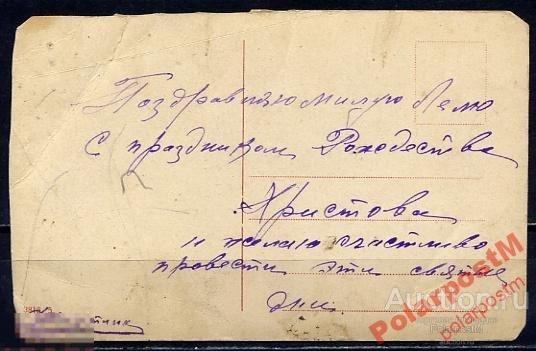 Поздравляю милую Лёлю
с праздником Рождества
Христова
и желаю счастливо
провести эти святые
дни.
PolarpostM
Auction.ru
PolarpostM
polarpostm